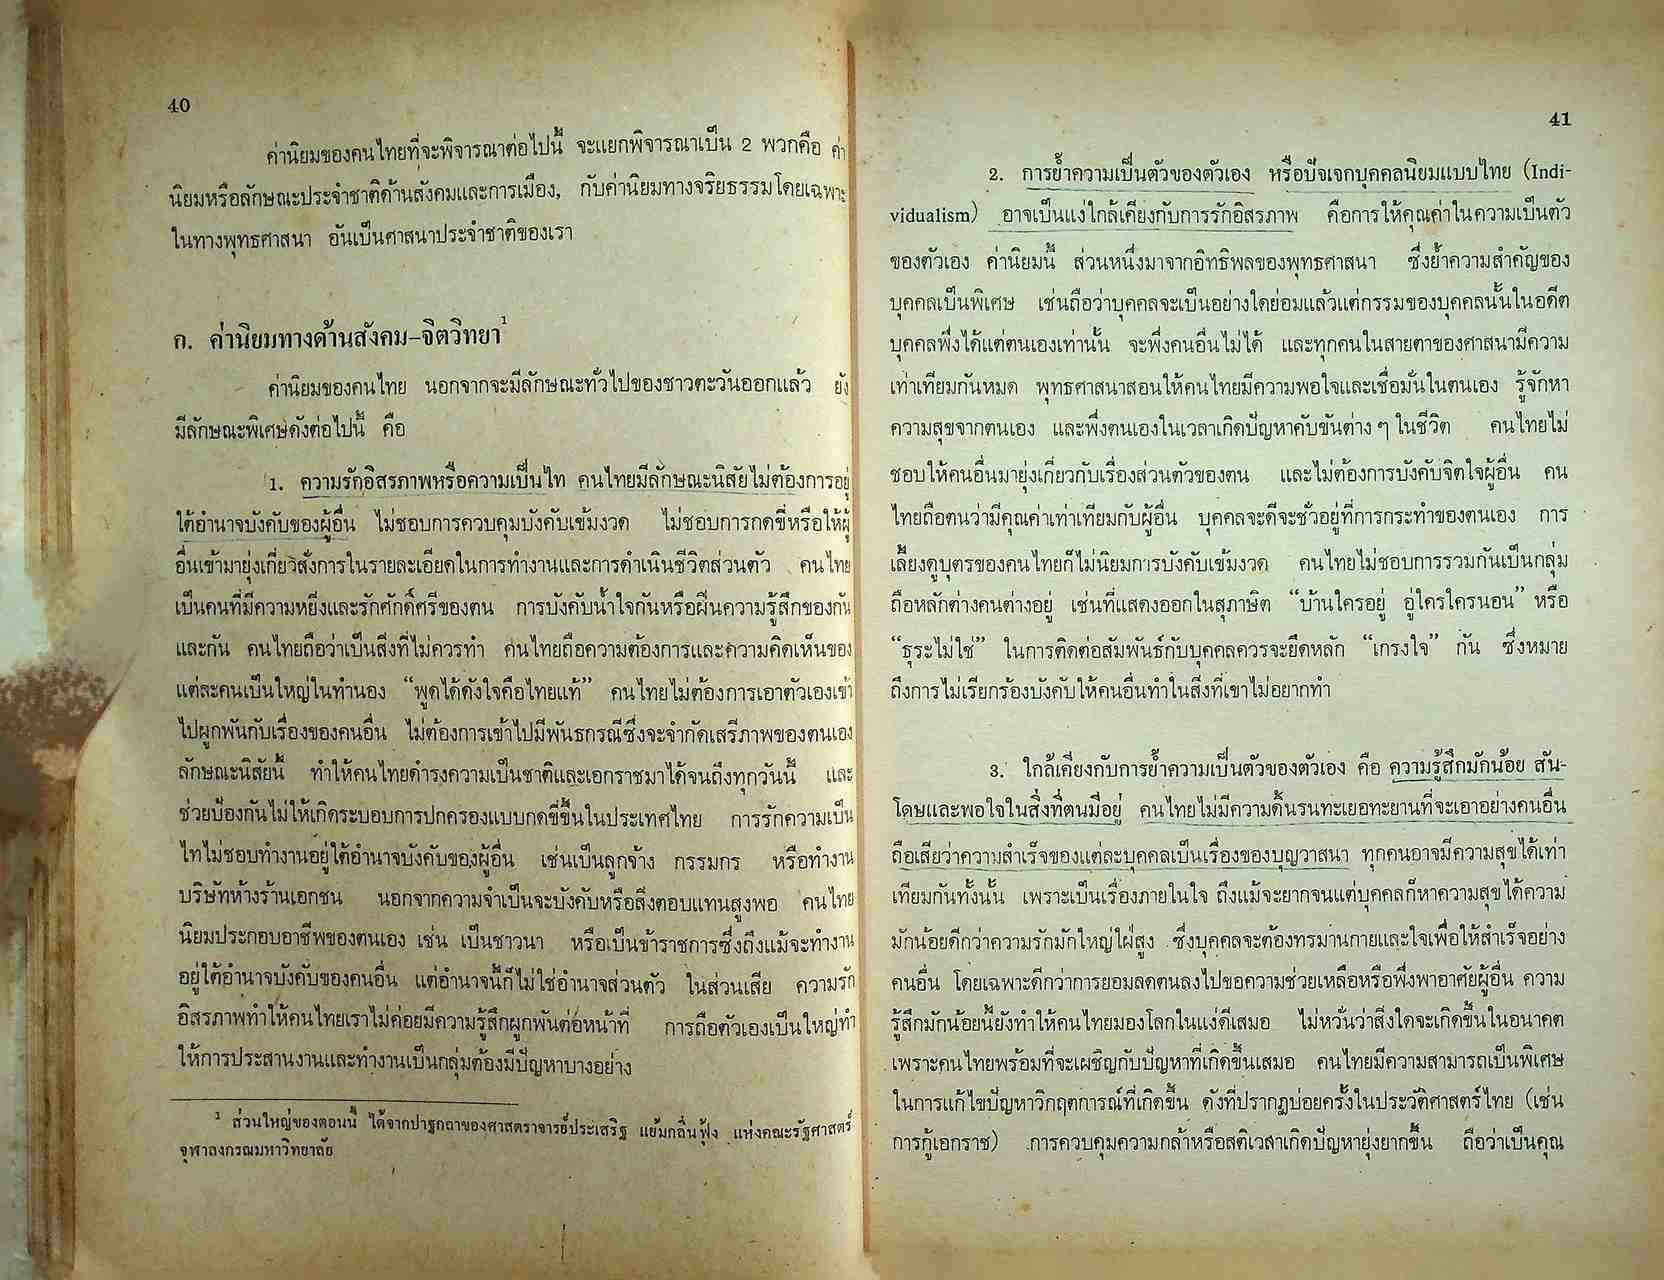 40
ค่านิยมของคนไทยที่จะพิจารณาต่อไปนี้ จะแยกพิจารณาเป็น 2 พวกคือ ค่า
นิยมหรือลักษณะประจำชาติด้านสังคมและการเมือง, กับค่านิยมทางจริยธรรมโดยเฉพาะ
ในทางพุทธศาสนา อันเป็นศาสนาประจำชาติของเรา
ก. ค่านิยมทางด้านสังคม–จิตวิทยา¹
ค่านิยมของคนไทย นอกจากจะมีลักษณะทั่วไปของชาวตะวันออกแล้ว ยัง
มีลักษณะพิเศษดังต่อไปนี้ คือ
1. ความรักอิสรภาพหรือความเป็นไท คนไทยมีลักษณะนิสัยไม่ต้องการอยู่
ใต้อำนาจบังคับของผู้อื่น ไม่ชอบการควบคุมบังคับเข้มงวด ไม่ชอบการกดขี่หรือให้ผู้
อื่นเข้ามายุ่งเกี่ยวสั่งการในรายละเอียดในการทำงานและการดำเนินชีวิตส่วนตัว คนไทย
เป็นคนที่มีความหยิ่งและรักศักดิ์ศรีของตน การบังคับน้ำใจกันหรือฝืนความรู้สึกของกัน
และกัน คนไทยถือว่าเป็นสิ่งที่ไม่ควรทำ คนไทยถือความต้องการและความคิดเห็นของ
แต่ละคนเป็นใหญ่ในทำนอง “พูดได้ดังใจคือไทยแท้” คนไทยไม่ต้องการเอาตัวเองเข้า
ไปผูกพันกับเรื่องของคนอื่น ไม่ต้องการเข้าไปมีพันธกรณีซึ่งจะจำกัดเสรีภาพของตนเอง
ลักษณะนิสัยนี้ ทำให้คนไทยดำรงความเป็นชาติและเอกราชมาได้จนถึงทุกวันนี้ และ
ช่วยป้องกันไม่ให้เกิดระบอบการปกครองแบบกดขี่ขึ้นในประเทศไทย การรักความเป็น
ไทไม่ชอบทำงานอยู่ใต้อำนาจบังคับของผู้อื่น เช่นเป็นลูกจ้าง กรรมกร หรือทำงาน
บริษัทห้างร้านเอกชน นอกจากความจำเป็นจะบังคับหรือสิ่งตอบแทนสูงพอ คนไทย
นิยมประกอบอาชีพของตนเอง เช่น เป็นชาวนา หรือเป็นข้าราชการซึ่งถึงแม้จะทำงาน
อยู่ใต้อำนาจบังคับของคนอื่น แต่อำนาจนี้ก็ไม่ใช่อำนาจส่วนตัว ในส่วนเสีย ความรัก
อิสรภาพทำให้คนไทยเราไม่ค่อยมีความรู้สึกผูกพันต่อหน้าที่ การถือตัวเองเป็นใหญ่ทำ
ให้การประสานงานและทำงานเป็นกลุ่มต้องมีปัญหาบางอย่าง
¹ ส่วนใหญ่ของตอนนี้ ได้จากปาฐกถาของศาสตราจารย์ประเสริฐ แย้มกลิ่นฟุ้ง แห่งคณะรัฐศาสตร์
จุฬาลงกรณมหาวิทยาลัย
41
2. การย้ำความเป็นตัวของตัวเอง หรือปัจเจกบุคคลนิยมแบบไทย (Indi-
vidualism) อาจเป็นแง่ใกล้เคียงกับการรักอิสรภาพ คือการให้คุณค่าในความเป็นตัว
ของตัวเอง ค่านิยมนี้ ส่วนหนึ่งมาจากอิทธิพลของพุทธศาสนา ซึ่งย้ำความสำคัญของ
บุคคลเป็นพิเศษ เช่นถือว่าบุคคลจะเป็นอย่างใดย่อมแล้วแต่กรรมของบุคคลนั้นในอดีต
บุคคลพึ่งได้แต่ตนเองเท่านั้น จะพึ่งคนอื่นไม่ได้ และทุกคนในสายตาของศาสนามีความ
เท่าเทียมกันหมด พุทธศาสนาสอนให้คนไทยมีความพอใจและเชื่อมั่นในตนเอง รู้จักหา
ความสุขจากตนเอง และพึ่งตนเองในเวลาเกิดปัญหาคับขันต่าง ๆ ในชีวิต คนไทยไม่
ชอบให้คนอื่นมายุ่งเกี่ยวกับเรื่องส่วนตัวของตน และไม่ต้องการบังคับจิตใจผู้อื่น คน
ไทยถือตนว่ามีคุณค่าเท่าเทียมกับผู้อื่น บุคคลจะดีจะชั่วอยู่ที่การกระทำของตนเอง การ
เลี้ยงดูบุตรของคนไทยก็ไม่นิยมการบังคับเข้มงวด คนไทยไม่ชอบการรวมกันเป็นกลุ่ม
ถือหลักต่างคนต่างอยู่ เช่นที่แสดงออกในสุภาษิต “บ้านใครอยู่ อู่ใครใครนอน” หรือ
“ธุระไม่ใช่” ในการติดต่อสัมพันธ์กับบุคคลควรจะยึดหลัก “เกรงใจ” กัน ซึ่งหมาย
ถึงการไม่เรียกร้องบังคับให้คนอื่นทำในสิ่งที่เขาไม่อยากทำ
3. ใกล้เคียงกับการย้ำความเป็นตัวของตัวเอง คือ ความรู้สึกมักน้อย สัน-
โดษและพอใจในสิ่งที่ตนมีอยู่ คนไทยไม่มีความดิ้นรนทะเยอทะยานที่จะเอาอย่างคนอื่น
ถือเสียว่าความสำเร็จของแต่ละบุคคลเป็นเรื่องของบุญวาสนา ทุกคนอาจมีความสุขได้เท่า
เทียมกันทั้งนั้น เพราะเป็นเรื่องภายในใจ ถึงแม้จะยากจนแต่บุคคลก็หาความสุขได้ความ
มักน้อยดีกว่าความรักมักใหญ่ใฝ่สูง ซึ่งบุคคลจะต้องทรมานกายและใจเพื่อให้สำเร็จอย่าง
คนอื่น โดยเฉพาะดีกว่าการยอมลดตนลงไปขอความช่วยเหลือหรือพึ่งพาอาศัยผู้อื่น ความ
รู้สึกมักน้อยนี้ยังทำให้คนไทยมองโลกในแง่ดีเสมอ ไม่หวั่นว่าสิ่งใดจะเกิดขึ้นในอนาคต
เพราะคนไทยพร้อมที่จะเผชิญกับปัญหาที่เกิดขึ้นเสมอ คนไทยมีความสามารถเป็นพิเศษ
ในการแก้ไขปัญหาวิกฤตการณ์ที่เกิดขึ้น ดังที่ปรากฏบ่อยครั้งในประวัติศาสตร์ไทย (เช่น
การกู้เอกราช) การควบคุมความกล้าหรือสติเวลาเกิดปัญหายุ่งยากขึ้น ถือว่าเป็นคุณ